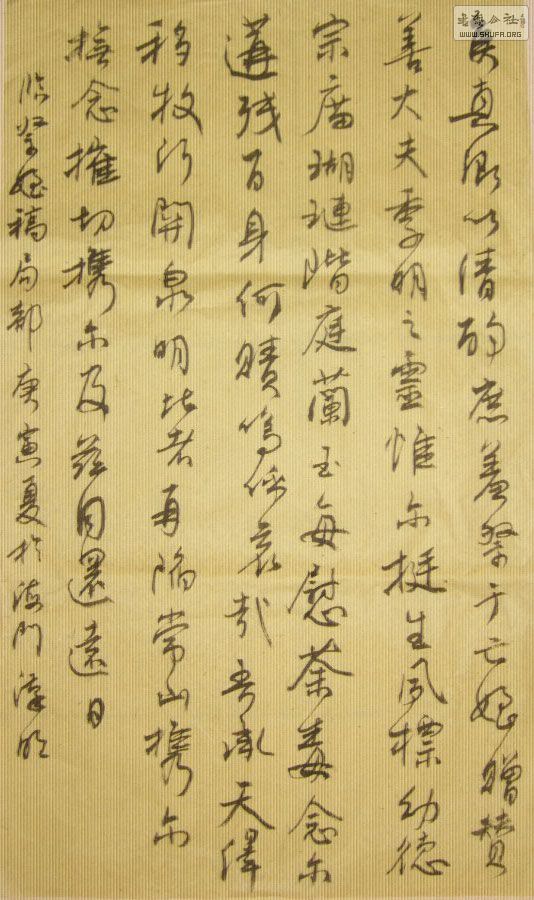 侯真卿以清酌庶羞祭于亡姪贈贊
善大夫季明之靈惟尔挺生夙標幼德
宗廟瑚璉階庭蘭玉每慰荼毒念尔
遘残百身何贖嗚呼哀哉吾承天澤
移牧河開泉明比者再陷常山携尔
撫念摧切携尔及茲同還遠日
臨祭姪稿局部 庚寅夏於海門
公社
WWW.SHUFA.ORG